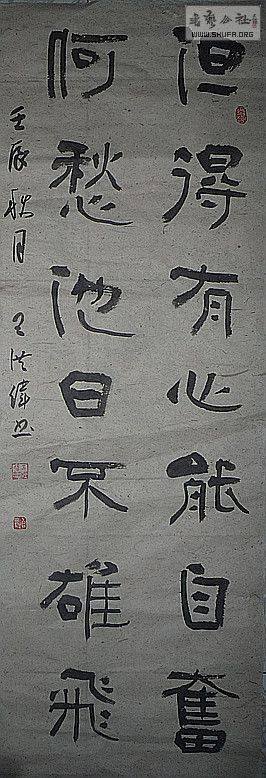 書藝公社
WWW.SHUFA.ORG
但得有心能自奮
何愁他日不雄飛
壬辰秋月 王洪偉书